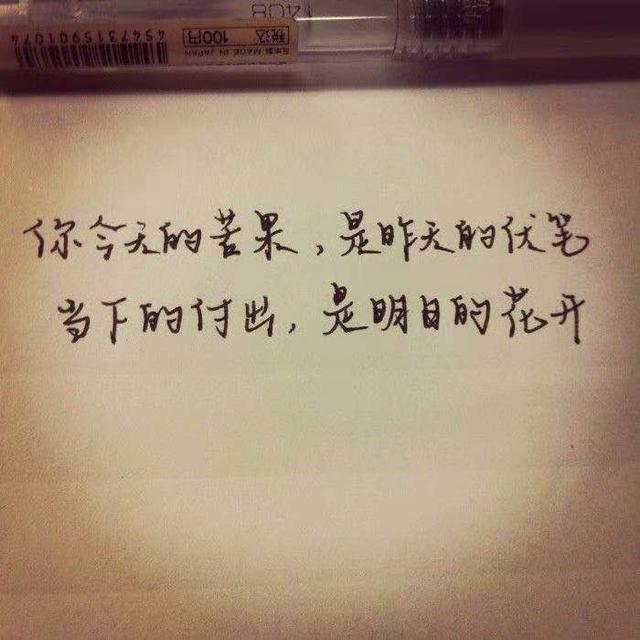 408
4547315901074
100円
税込
MADE IN JAPAN
你今天的苦果，是昨天的伏笔
当下的付出，是明日的花开